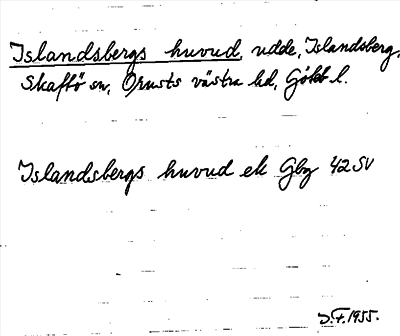 Islandsbergs huvud, udde, Islandsberg,
Skaftö sn, Orusts västra hd, Götbl l.
Islandsbergs huvud ek Gbg 42 SV
J.F. 1955.